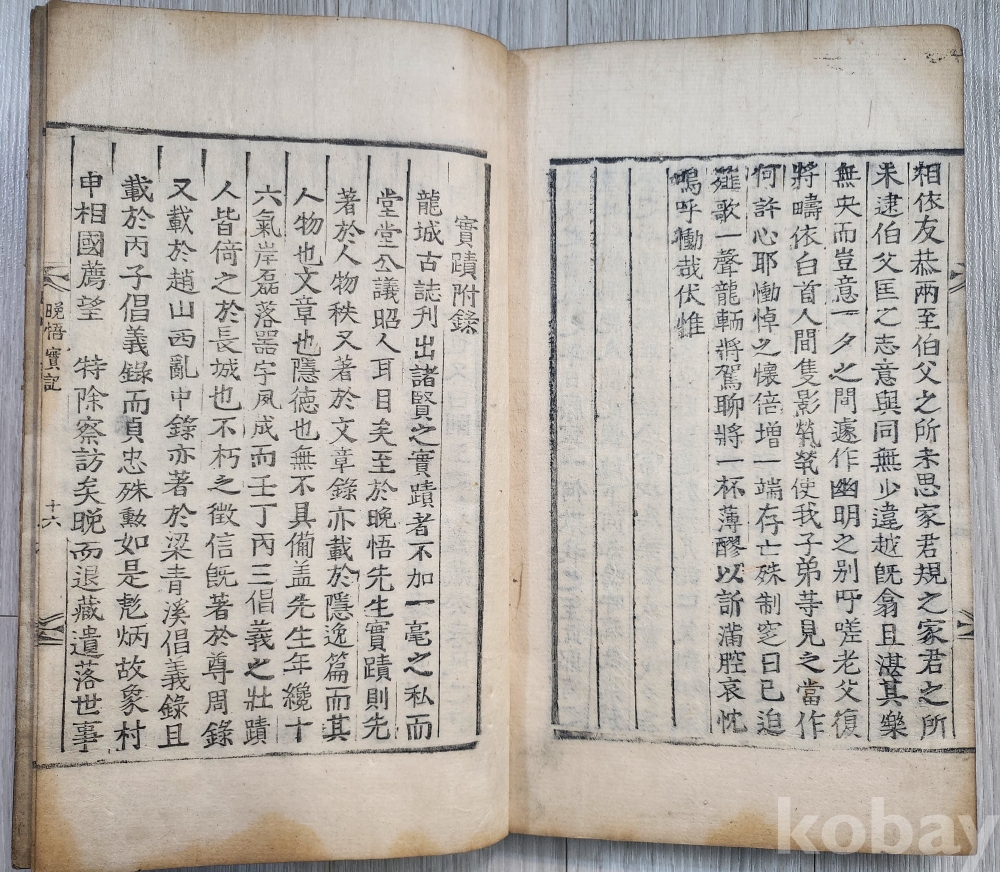 相依友恭兩至伯父之所未思家君規之家君之所
未逮伯父匡之志意與同無少違越旣翕且湛其樂
無央而豈意一夕之間遽作幽明之別吁嗟老父復
將疇依白首人間隻影煢煢使我子弟等見之當作
何許心耶慟悼之懷倍增一端存亡殊制窆日已迫
薤歌一聲龍輀將駕聊將一杯薄醪以訴滿腔哀忱
嗚呼慟哉伏惟
實蹟附錄
龍城古誌刋出諸賢之實蹟者不加一毫之私而
堂堂公議昭人耳目矣至於晚悟先生實蹟則先
著於人物秩又著於文章錄亦載於隱逸篇而其
人物也文章也隱德也無不具備盖先生年纔十
六氣岸磊落器宇夙成而壬丁丙三倡義之壯蹟
人皆倚之於長城也不朽之徵信旣著於尊周錄
又載於趙山西亂中錄亦著於梁青溪倡義錄且
載於丙子倡義錄而貞忠殊勳如是彪炳故象村
申相國薦望 特除察訪矣晚而退藏遺落世事
晚悟實記
十六
kobay